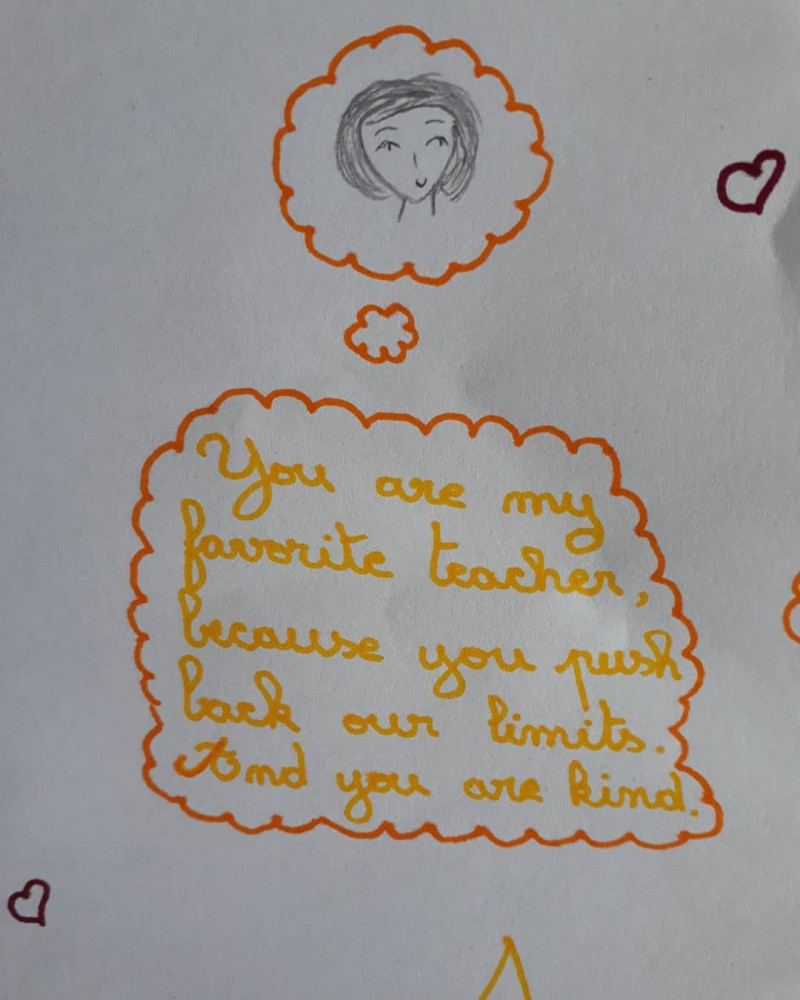 You are my
favorite teacher,
because you push
back our limits.
And you are kind.